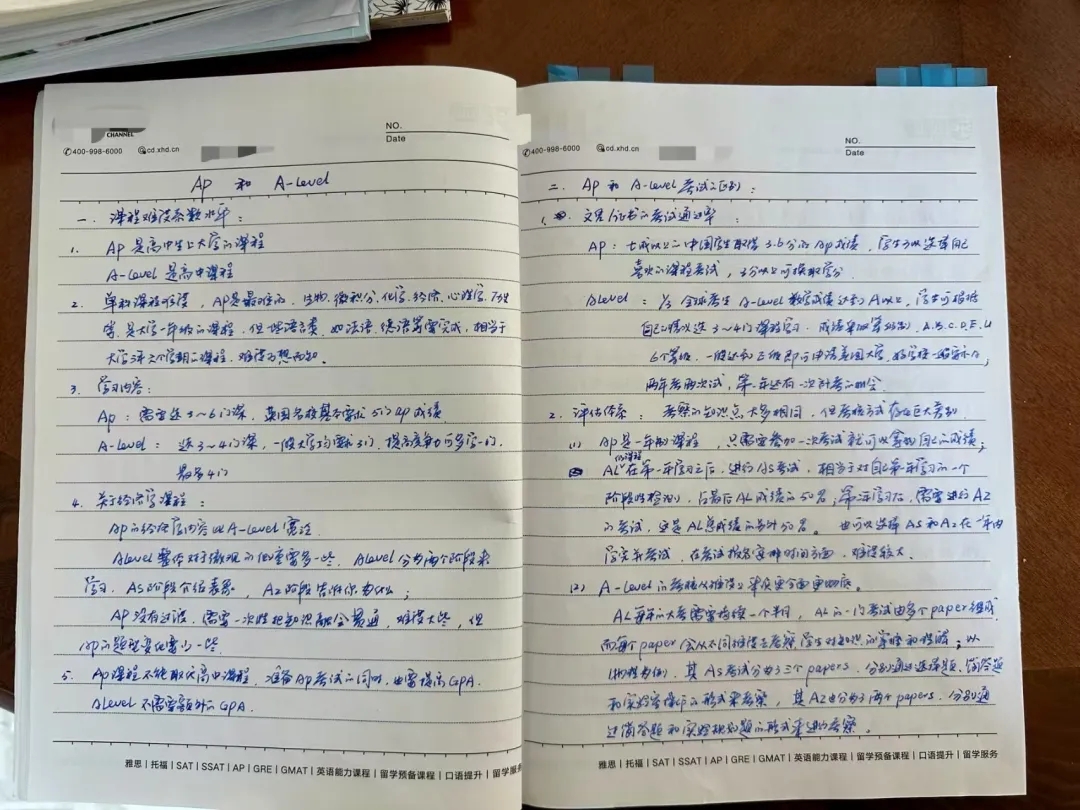 CHANNEL
400-998-6000 cd.xhd.cn
NO.
Date
AP 和 A-Level
一. 课程难度系数水平:
1. AP是高中生上大学的课程
A-Level 是高中课程
2. 单科课程难度, AP是最难的. 生物. 微积分. 化学. 经济. 心理学. 历史
等. 是大学一年级的课程. 但 外语类. 如法语. 德语需要完成, 相当于
大学 三个学期的课程. 难度可想而知.
3. 学习内容:
AP: 需要选3~6门课. 美国名校基本要求5门AP成绩
A-Level: 选3~4门课, 一般大学均要求3门. 提高竞争力可多学一门.
最多4门
4. 关于经济学课程:
AP的经济学内容比A-Level 宽泛
Alevel 整体对于微观的 重要多一些. Alevel 分为两个阶段来
学习. AS阶段介绍表象, A2阶段告诉你为什么;
AP没有过渡. 需要一次性把知识融会贯通, 难度大些, 但
AP的题型变化要小一些.
5. AP课程不能取代高中课程. 准备AP考试的同时. 也需提高GPA.
Alevel 不需要额外的GPA.
雅思 | 托福 | SAT | SSAT | AP | GRE | GMAT | 英语能力课程 | 留学预备课程 | 口语提升 | 留学服务
400-998-6000 cd.xhd.cn
NO.
Date
二. AP 和 A-Level 考试之区别:
1. 文凭/证书的考试通过率:
AP: 七成以上的中国学生取得3.6分的AP成绩. 学生可以选择自己
喜欢的课程考试, 3分以上可换取学分.
Alevel: 全球考生 A-Level 数学成绩达到A以上, 学生可根据
自己情况选3~4门课程学习. 成绩 等级制. A.B.C.D.E.U
6个等级. 一般达到三级即可申请美国大学.
两年考两次试, 第一年还有一次补考的机会.
2. 评估体系: 考察的知识点大多相同, 但考核方式存在巨大差别
(1) AP是一年制课程, 只需要参加一次考试就可以拿到自己的成绩;
AL课程在第一年学习之后, 进行AS考试, 相当于对自己第一年学习的一个
阶段性检测, 占最后AL成绩的50%; 第二年学习后, 需要进行A2
的考试, 这是AL总成绩的另外50%. 也可以选择AS和A2在一年内
学完并考试, 在考试报名安排时间方面, 难度较大.
(2) A-Level的考核从难度上来说更全面更彻底.
AL每年的大考需要持续一个半月, AL的一门考试由多个paper组成
而每个paper会从不同难度去考察学生对知识的掌握和理解; 以
物理为例, 其AS考试分为了三个papers. 分别通过选择题、简答题
和实验室操作的形式来考察, 其A2也分为了两个papers. 分别通
过简答题和实验规划题的形式来进行考察.
雅思 | 托福 | SAT | SSAT | AP | GRE | GMAT | 英语能力课程 | 留学预备课程 | 口语提升 | 留学服务